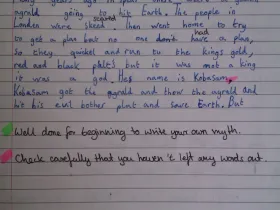 going to hit Earth. The people in
scared
London were then went home to try
had
to get a plan but no one have a plan,
So they quicked and run to the kings gold,
red and black but it was not a king
it was a god, Her name is Kobasam
Kobasam got the and threw the and
hit his evil bother plant and save Earth. But
Well done for beginning to write your own myth.
Check carefully that you haven't left any words out.